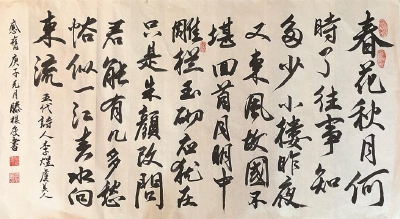 春花秋月何
時了往事知
多少小樓昨夜
又東風故國不
堪回首月明中
雕栏玉砌应犹在
只是朱顏改問
君能有几多愁
恰似一江春水向
東流 五代詩人李煜虞美人
庚子元月 書